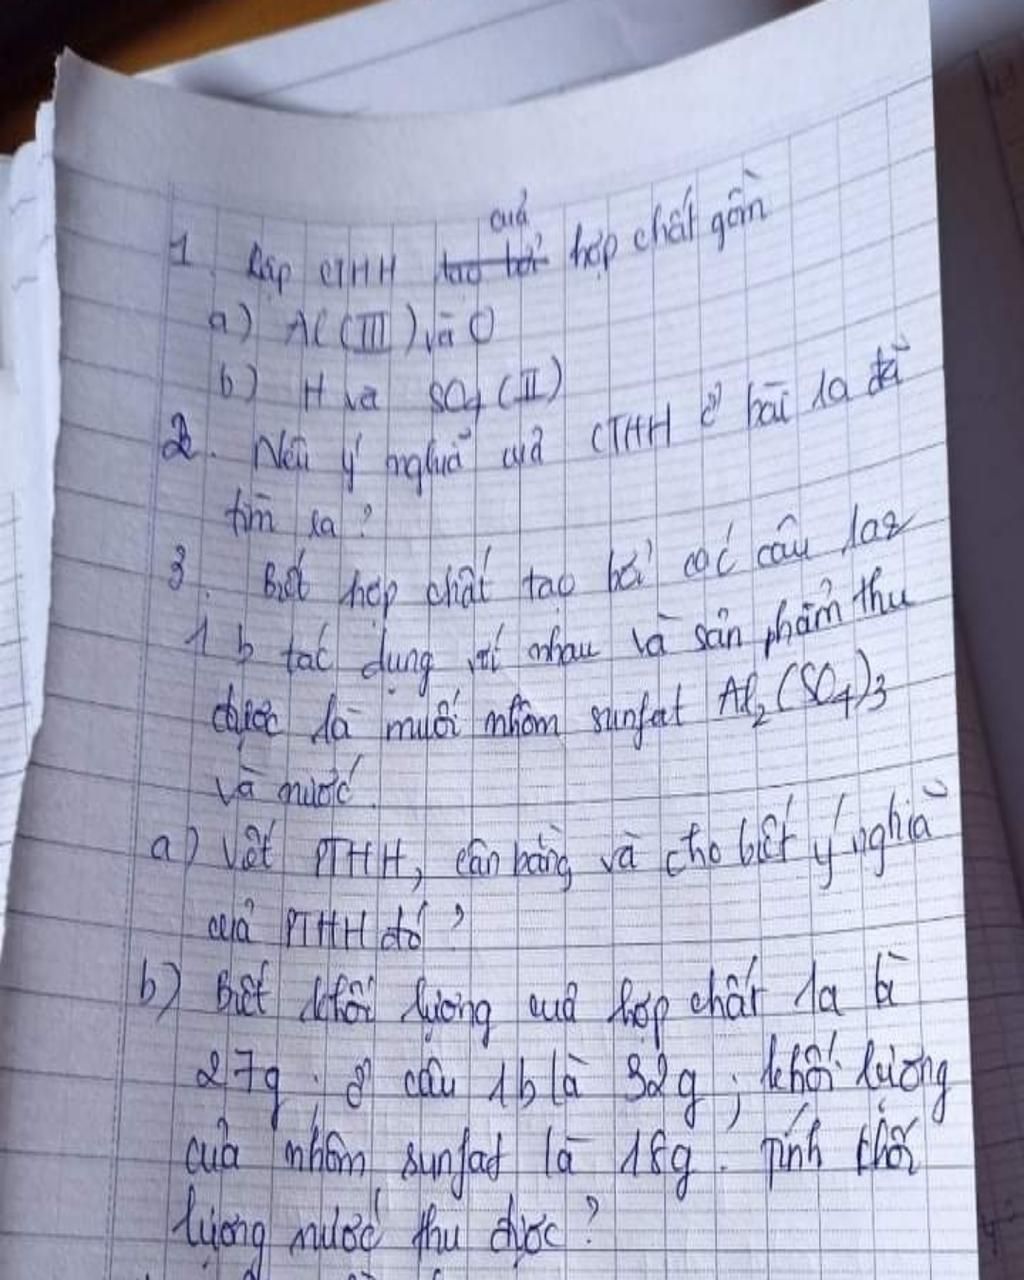 1. Lập CTHH của hợp chất gồm
a) Al (III) và O
b) H và SO4 (II)
2. Nêu ý nghĩa của CTHH ở bài 1a đã
tìm ra ?
3. Biết hợp chất tạo bởi các câu 1a &
1b tác dụng với nhau và sản phẩm thu
được là muối nhôm sunfat Al2(SO4)3
và nước.
a) Viết PTHH, cân bằng và cho biết ý nghĩa
của PTHH đó ?
b) Biết khối lượng của hợp chất 1a là
27g. ở câu 1b là 32g, khối lượng
của nhôm sunfat là 18g. Tính khối
lượng nước thu được ?